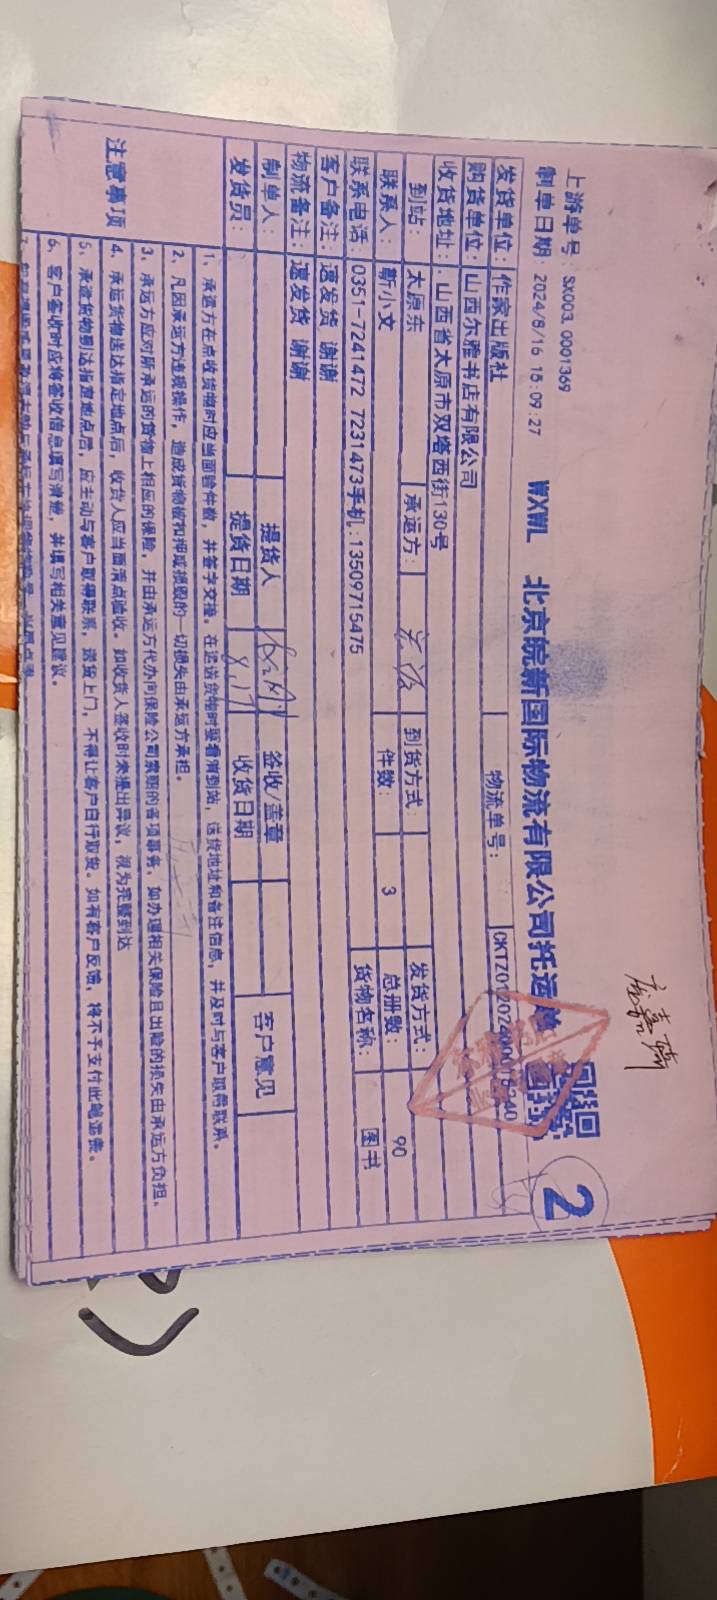 上游单号 SX003.0001369
制单日期 2024/8/16 15:09:27 WXWL 北京皖新国际物流有限公司托运单
2
发货单位: 作家出版社 物流单号: CKTZ012024000
购货单位: 山西尔雅书店有限公司
收货地址: 山西省太原市双塔西街130号
到站: 太原东 承运方: 到货方式: 发货方式:
联系人: 靳小文 件数: 3 总册数: 90
联系电话: 0351-7241472 7231473手机:13509715475 货物名称: 图书
客户备注: 速发货 谢谢
物流备注: 速发货 谢谢
制单人: 提货人 签收/盖章 客户意见
发货员: 提货日期 8.17 收货日期
注意事项
1、承运方在点收货物时应当面验件数，并签字交接。在运送货物时要看清到站，送货地址和备注信息，并及时与客户取得联系。
2、凡因承运方违规操作，造成货物被扣押或损毁的一切损失由承运方承担。
3、承运方应对所承运的货物上相应的保险，并由承运方代办向保险公司索赔的各项事务，如办理相关保险且出险的损失由承运方负担。
4、承运货物送达指定地点后，收货人应当面清点验收。如收货人签收时未提出异议，视为完整到达
5、承运货物到达指定地点后，应主动与客户取得联系，送货上门，不得让客户自行取货。如有客户反馈，将不予支付此笔运费。
6、客户签收时应将签收信息填写清楚，并填写相关意见建议。